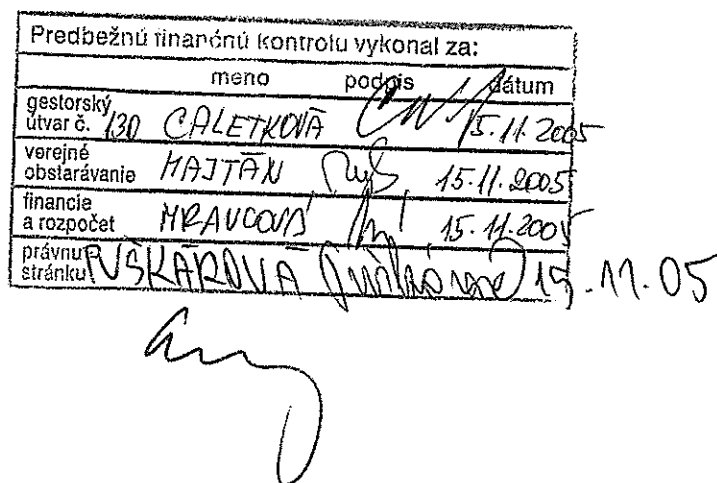 Predbežnú finančnú kontrolu vykonal za:
meno podpis dátum
gestorský
útvar č. 130 CALETKOVÁ 15.11.2005
verejné
obstarávanie MAJTÁN 15.11.2005
financie
a rozpočet MRAVCOVÁ 15.11.2005
právnu
stránku 15.11.05